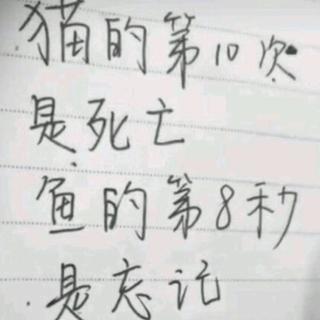 猫的第10次
是死亡
鱼的第8秒
是忘记